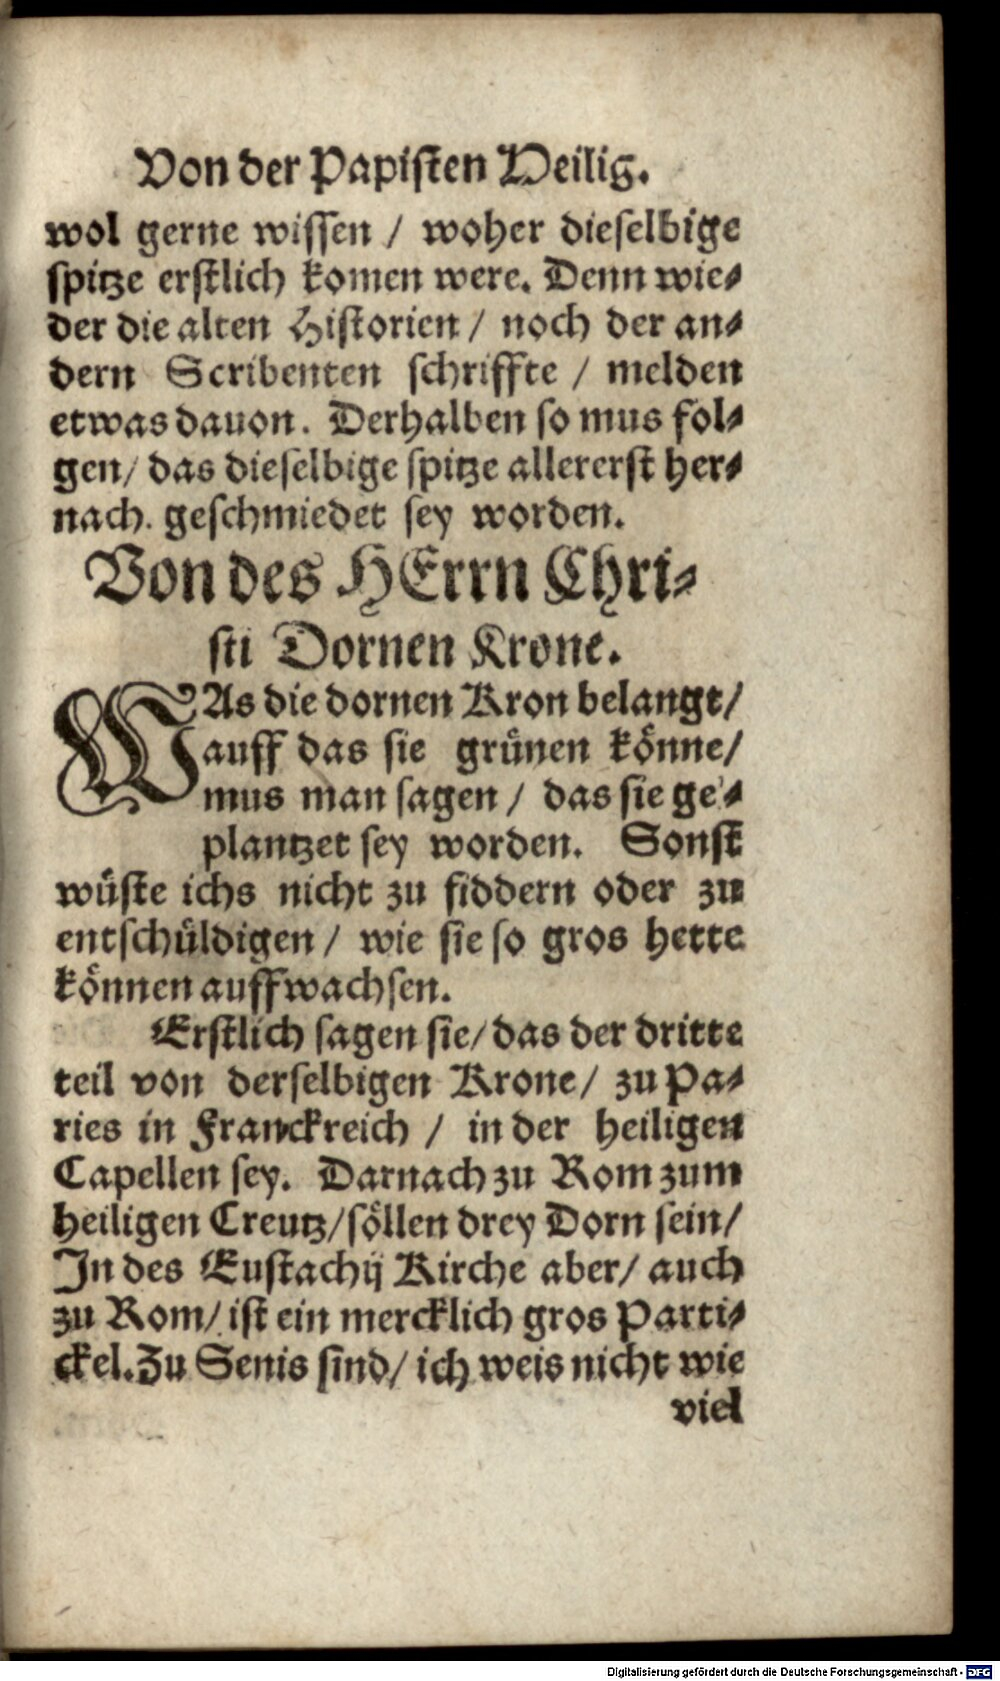 Von der Papisten Heilig.
wol gerne wissen / woher dieselbige
spitze erstlich komen were. Denn wie⸗
der die alten Historien / noch der an⸗
dern Scribenten schriffte / melden
etwas dauon. Derhalben so mus fol⸗
gen / das dieselbige spitze allererst her⸗
nach. geschmiedet sey worden.
Von des HErrn Chri⸗
sti Dornen Krone.
WAs die dornen Kron belangt /
auff das sie grünen könne /
mus man sagen / das sie ge⸗
plantzet sey worden. Sonst
wüste ichs nicht zu fiddern oder zu
entschüldigen / wie sie so gros hette
können auffwachsen.
Erstlich sagen sie / das der dritte
teil von derselbigen Krone / zu Pa⸗
ries in Franckreich / in der heiligen
Capellen sey. Darnach zu Rom zum
heiligen Creutz / söllen drey Dorn sein /
In des Eustachij Kirche aber / auch
zu Rom / ist ein mercklich gros Parti⸗
ckel. Zu Senis sind / ich weis nicht wie
viel
Digitalisierung gefördert durch die Deutsche Forschungsgemeinschaft - DFG